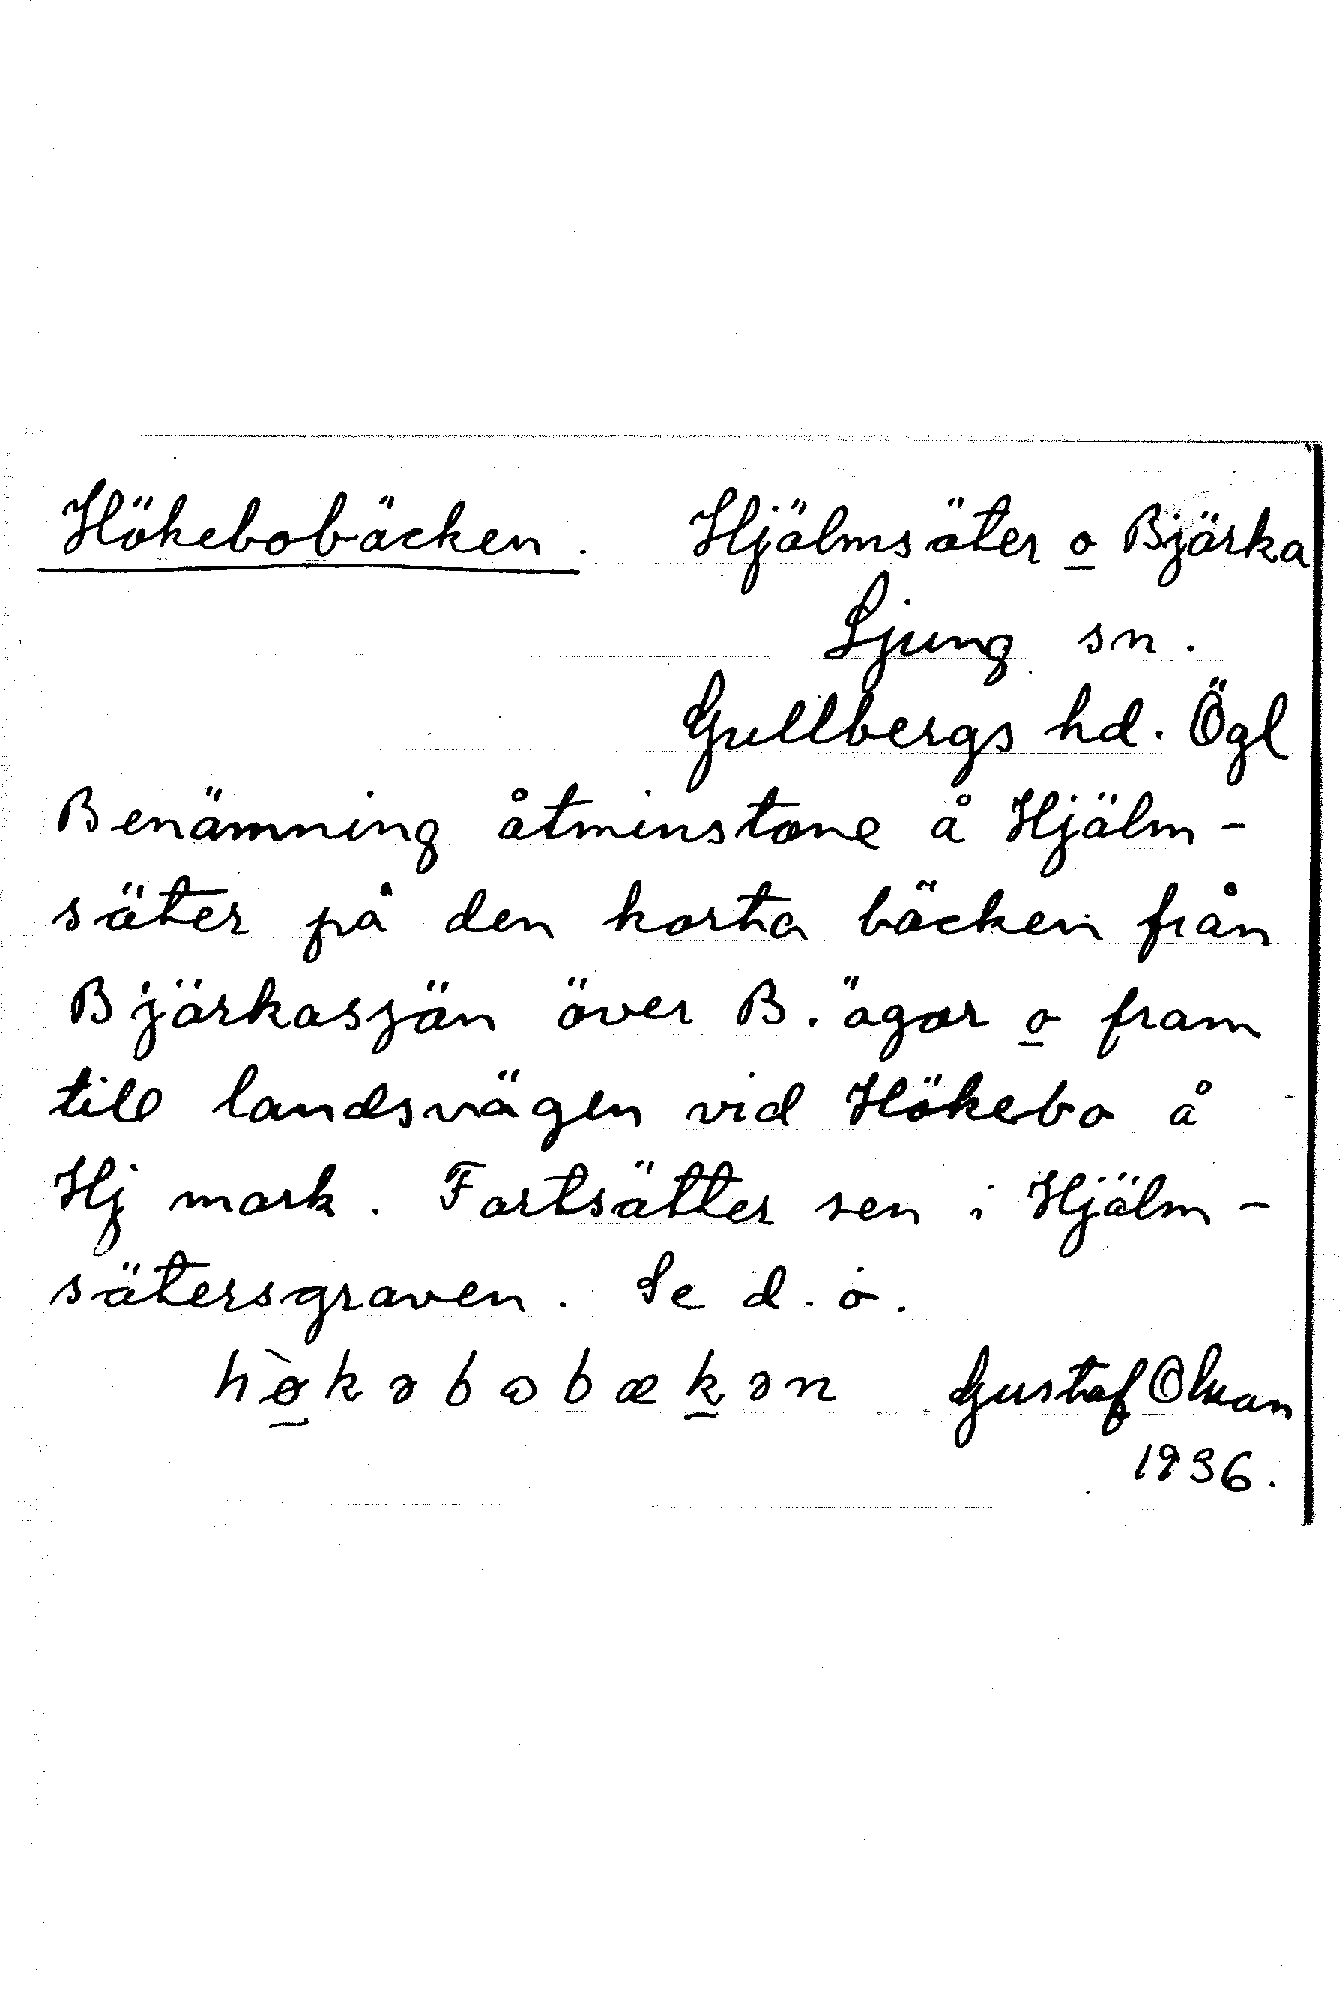 Hökebobäcken. Hjälmsäter o Bjärka
Ljung sn.
Gullbergs hd. Ögl
Benämning åtminstone å Hjälm-
säter på den korta bäcken från
Bjärkasjön över B. ägor o fram
till landsvägen vid Hökebo å
Hj mark. Fortsätter sen i Hjälm-
sätersgraven. Se d. o.
hø̀kəbɷbækən Gustaf Olson
1936.